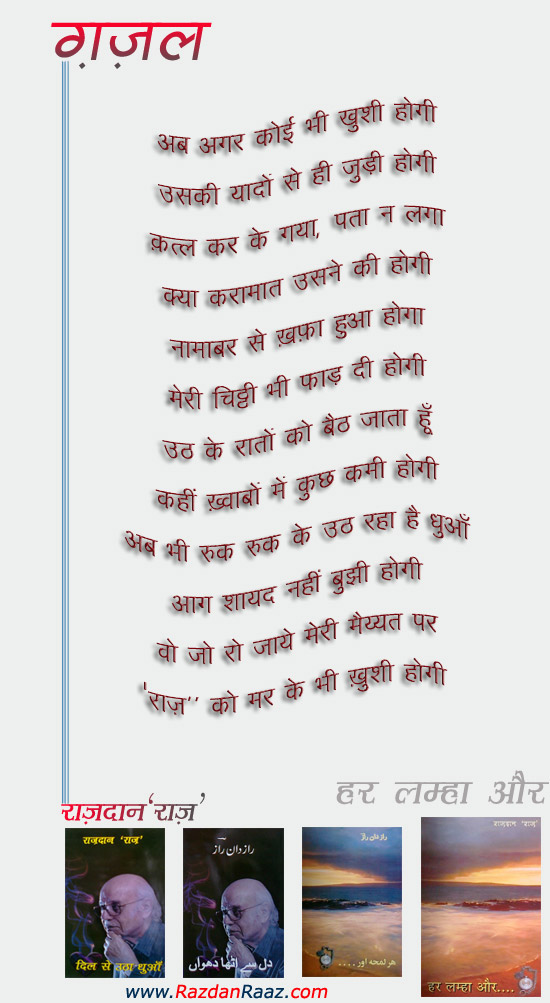 ग़ज़ल
अब अगर कोई भी खुशी होगी
उसकी यादों से ही जुड़ी होगी
क़त्ल कर के गया, पता न लगा
क्या करामात उसने की होगी
नामाबर से ख़फ़ा हुआ होगा
मेरी चिट्ठी भी फाड़ दी होगी
उठ के रातों को बैठ जाता हूँ
कहीं ख़्वाबों में कुछ कमी होगी
अब भी रुक रुक के उठ रहा है धुआँ
आग शायद नहीं बुझी होगी
वो जो रो जाये मेरी मैय्यत पर
'राज़'' को मर के भी ख़ुशी होगी
हर लम्हा और
राज़दान 'राज़'
राज़दान 'राज़'
दिल से उठा धुआँ
رازدان راز
دل سے اٹھا دھواں
رازدان راز
ہر لمحہ اور....
राज़दान 'राज़'
हर लम्हा और....
www.RazdanRaaz.com